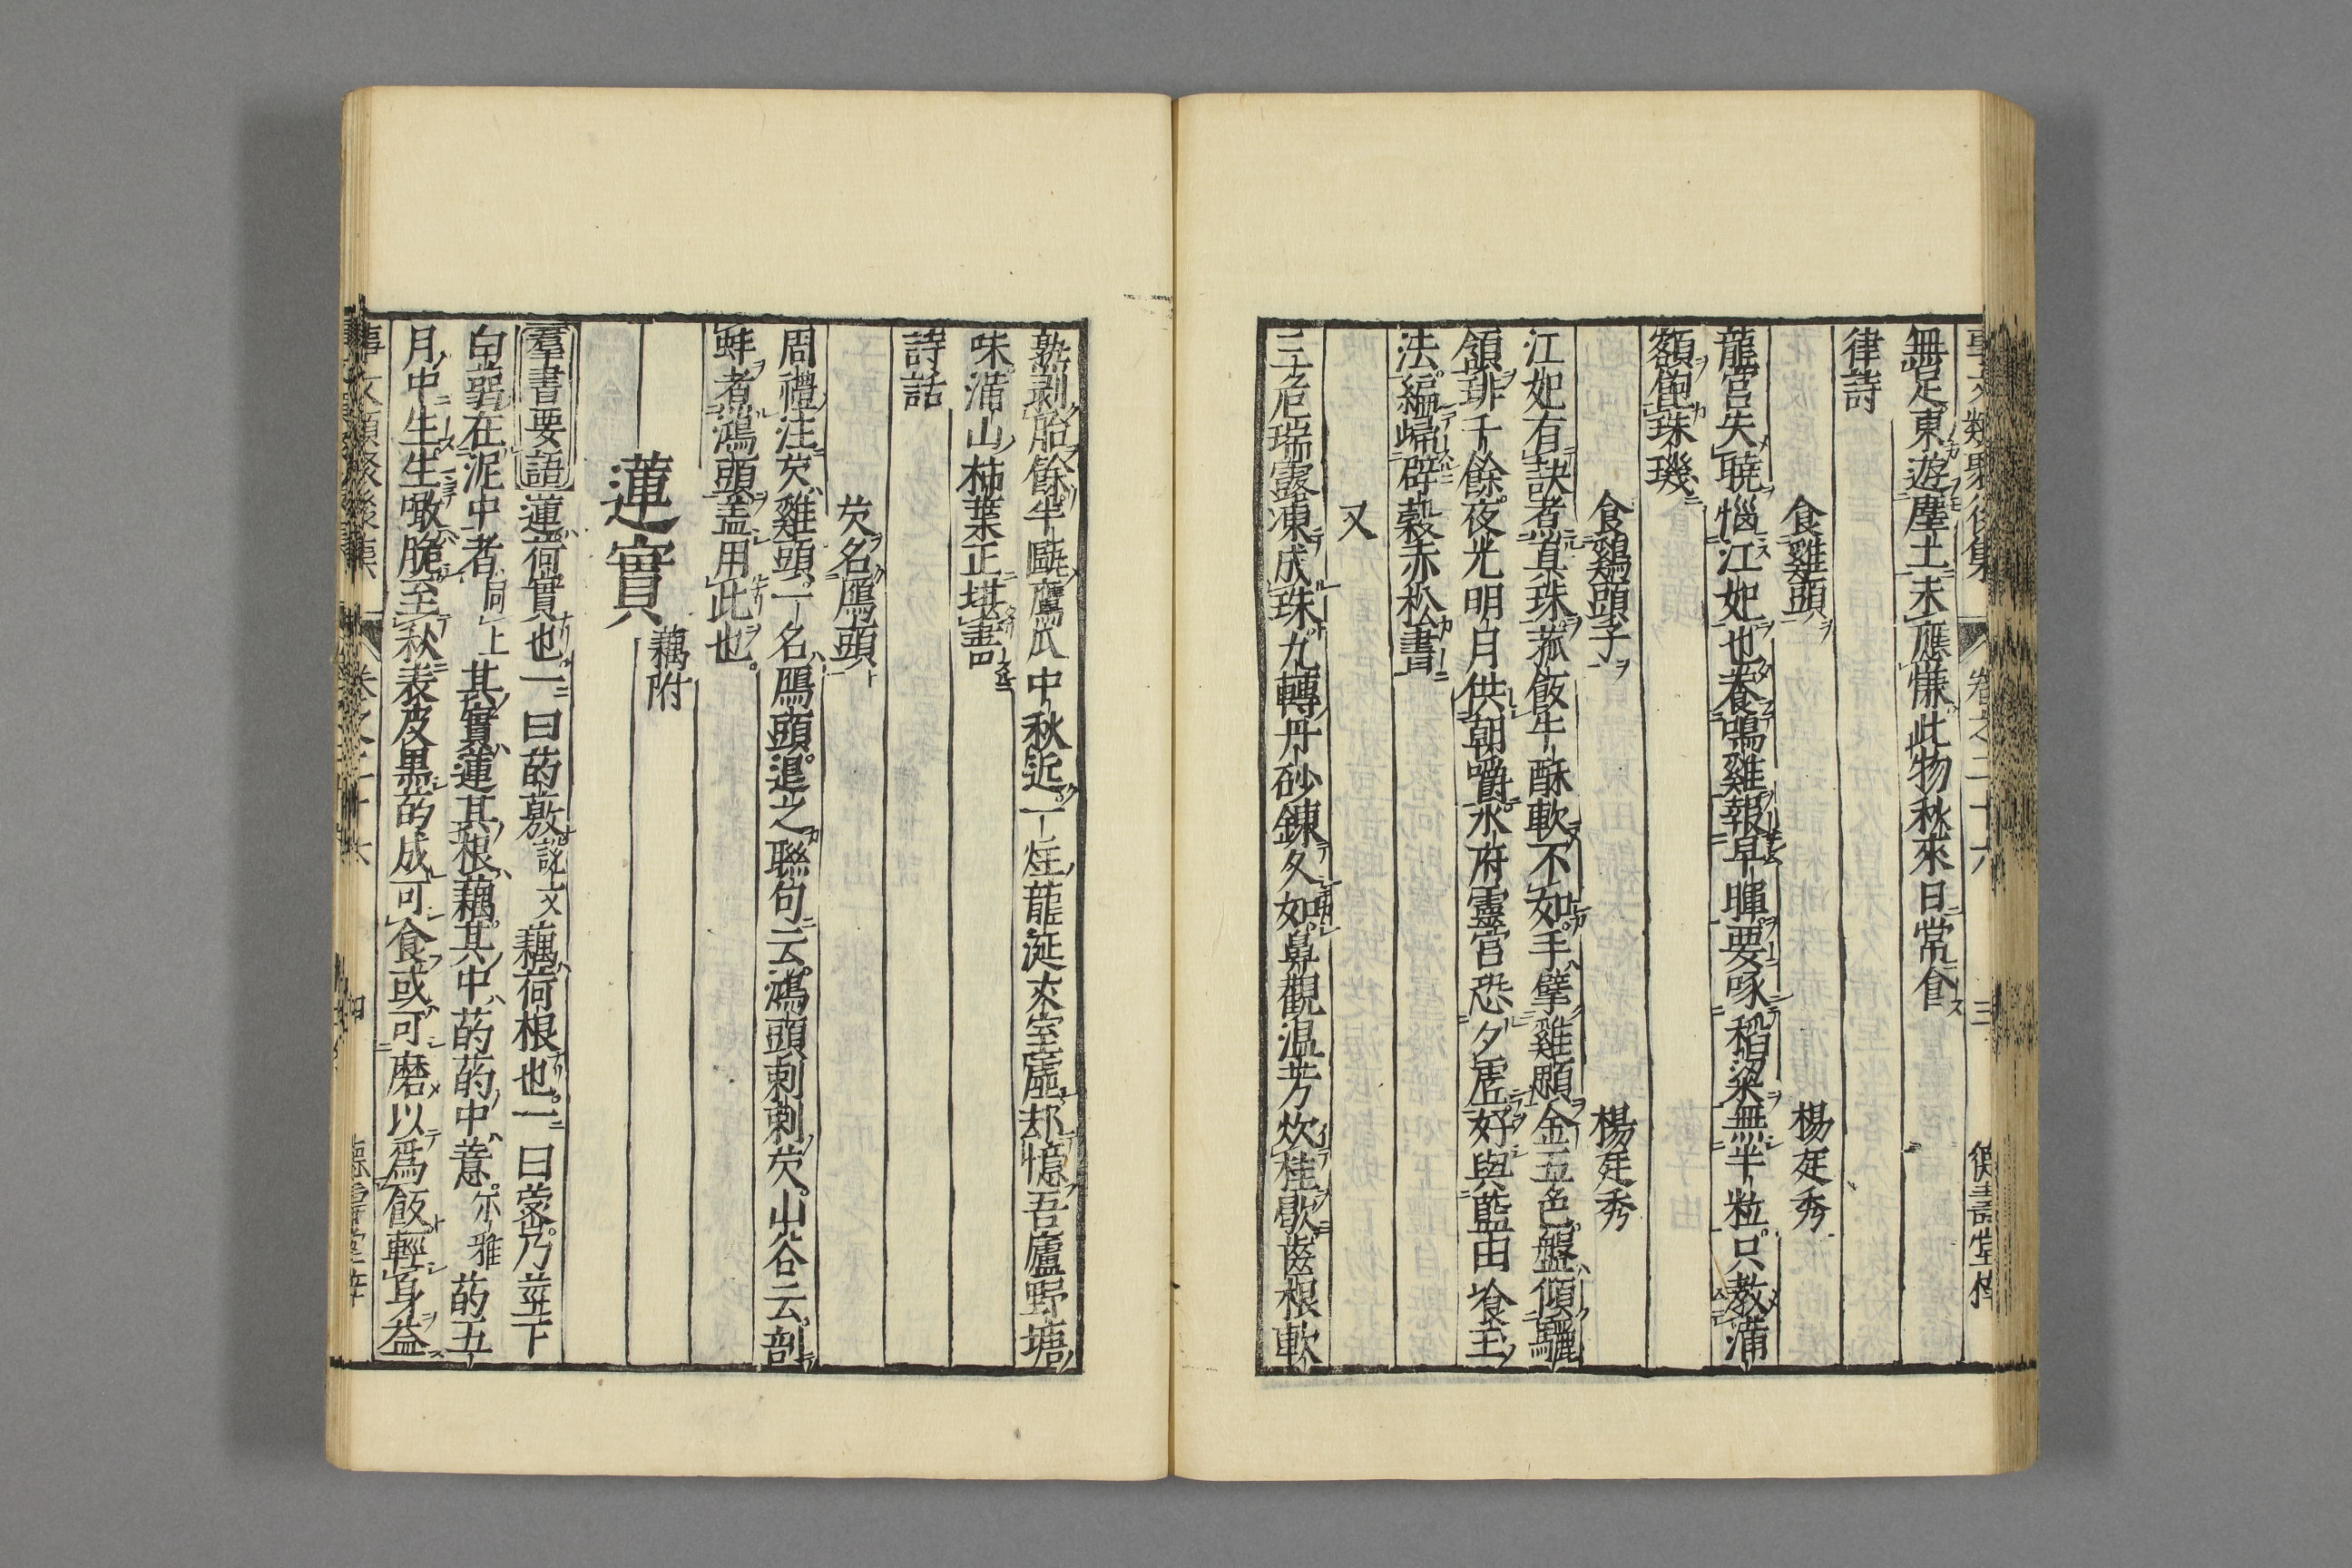 事文類聚後集 卷之二十六 三
無足東遊塵土未應慊此物秋來日常食
律詩
食雞頭 楊廷秀
龍宮失曉惱江妃也養鳴雞報早暉要啄稻粱無半粒只教滿
額飽珠璣
食鷄頭子 楊廷秀
江妃有訣煮真珠菰飯牛酥軟不如手擘雞頭金五色盤傾驪
頷琲千餘夜光明月供朝嚼水府靈宮恐夕虛好與藍田飡玉
法編歸辟穀赤松書
又
三危瑞露凍成珠九轉丹砂鍊久如鼻觀温芳炊桂歇齒根軟
熟剥胎餘半甌鷹爪中秋近一炷龍涎夾室虛却憶吾廬野塘
味滿山柿葉正堪書四
詩話
芡名鴈頭
周禮注芡雞頭一名鴈頭退之聯句云鴻頭刺刺芡山谷云剖
蚌煮鴻頭盖用此也
蓮實 藕附
羣書要語 蓮荷實也一曰菂薂說文藕荷根也一曰蔤乃莖下
白蒻在泥中者同上其實蓮其根藕其中菂菂中薏尔雅菂五
月中生生噉脆至秋表皮黒菂成可食或可磨以爲飯輕身益
事文類聚後集 卷之二十六 四